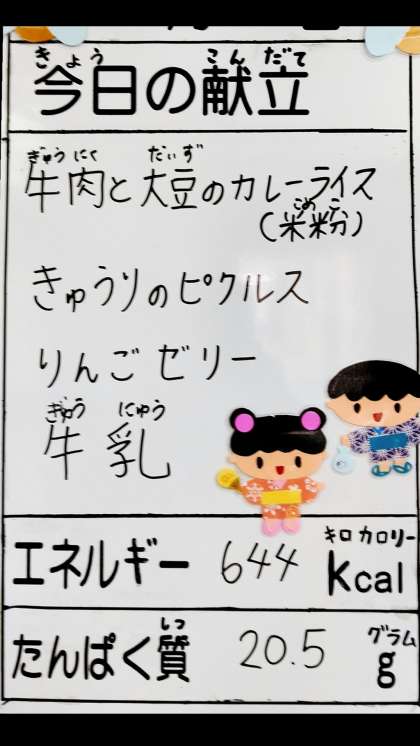 きょう こんだて
今日の献立
ぎゅう にく だいず
牛肉と大豆のカレーライス
こめ こ
(米粉)
きゅうりのピクルス
りんごゼリー
ぎゅう にゅう
牛乳
キロ カロリー
エネルギー 644 Kcal
しつ グラム
たんぱく質 20.5 g